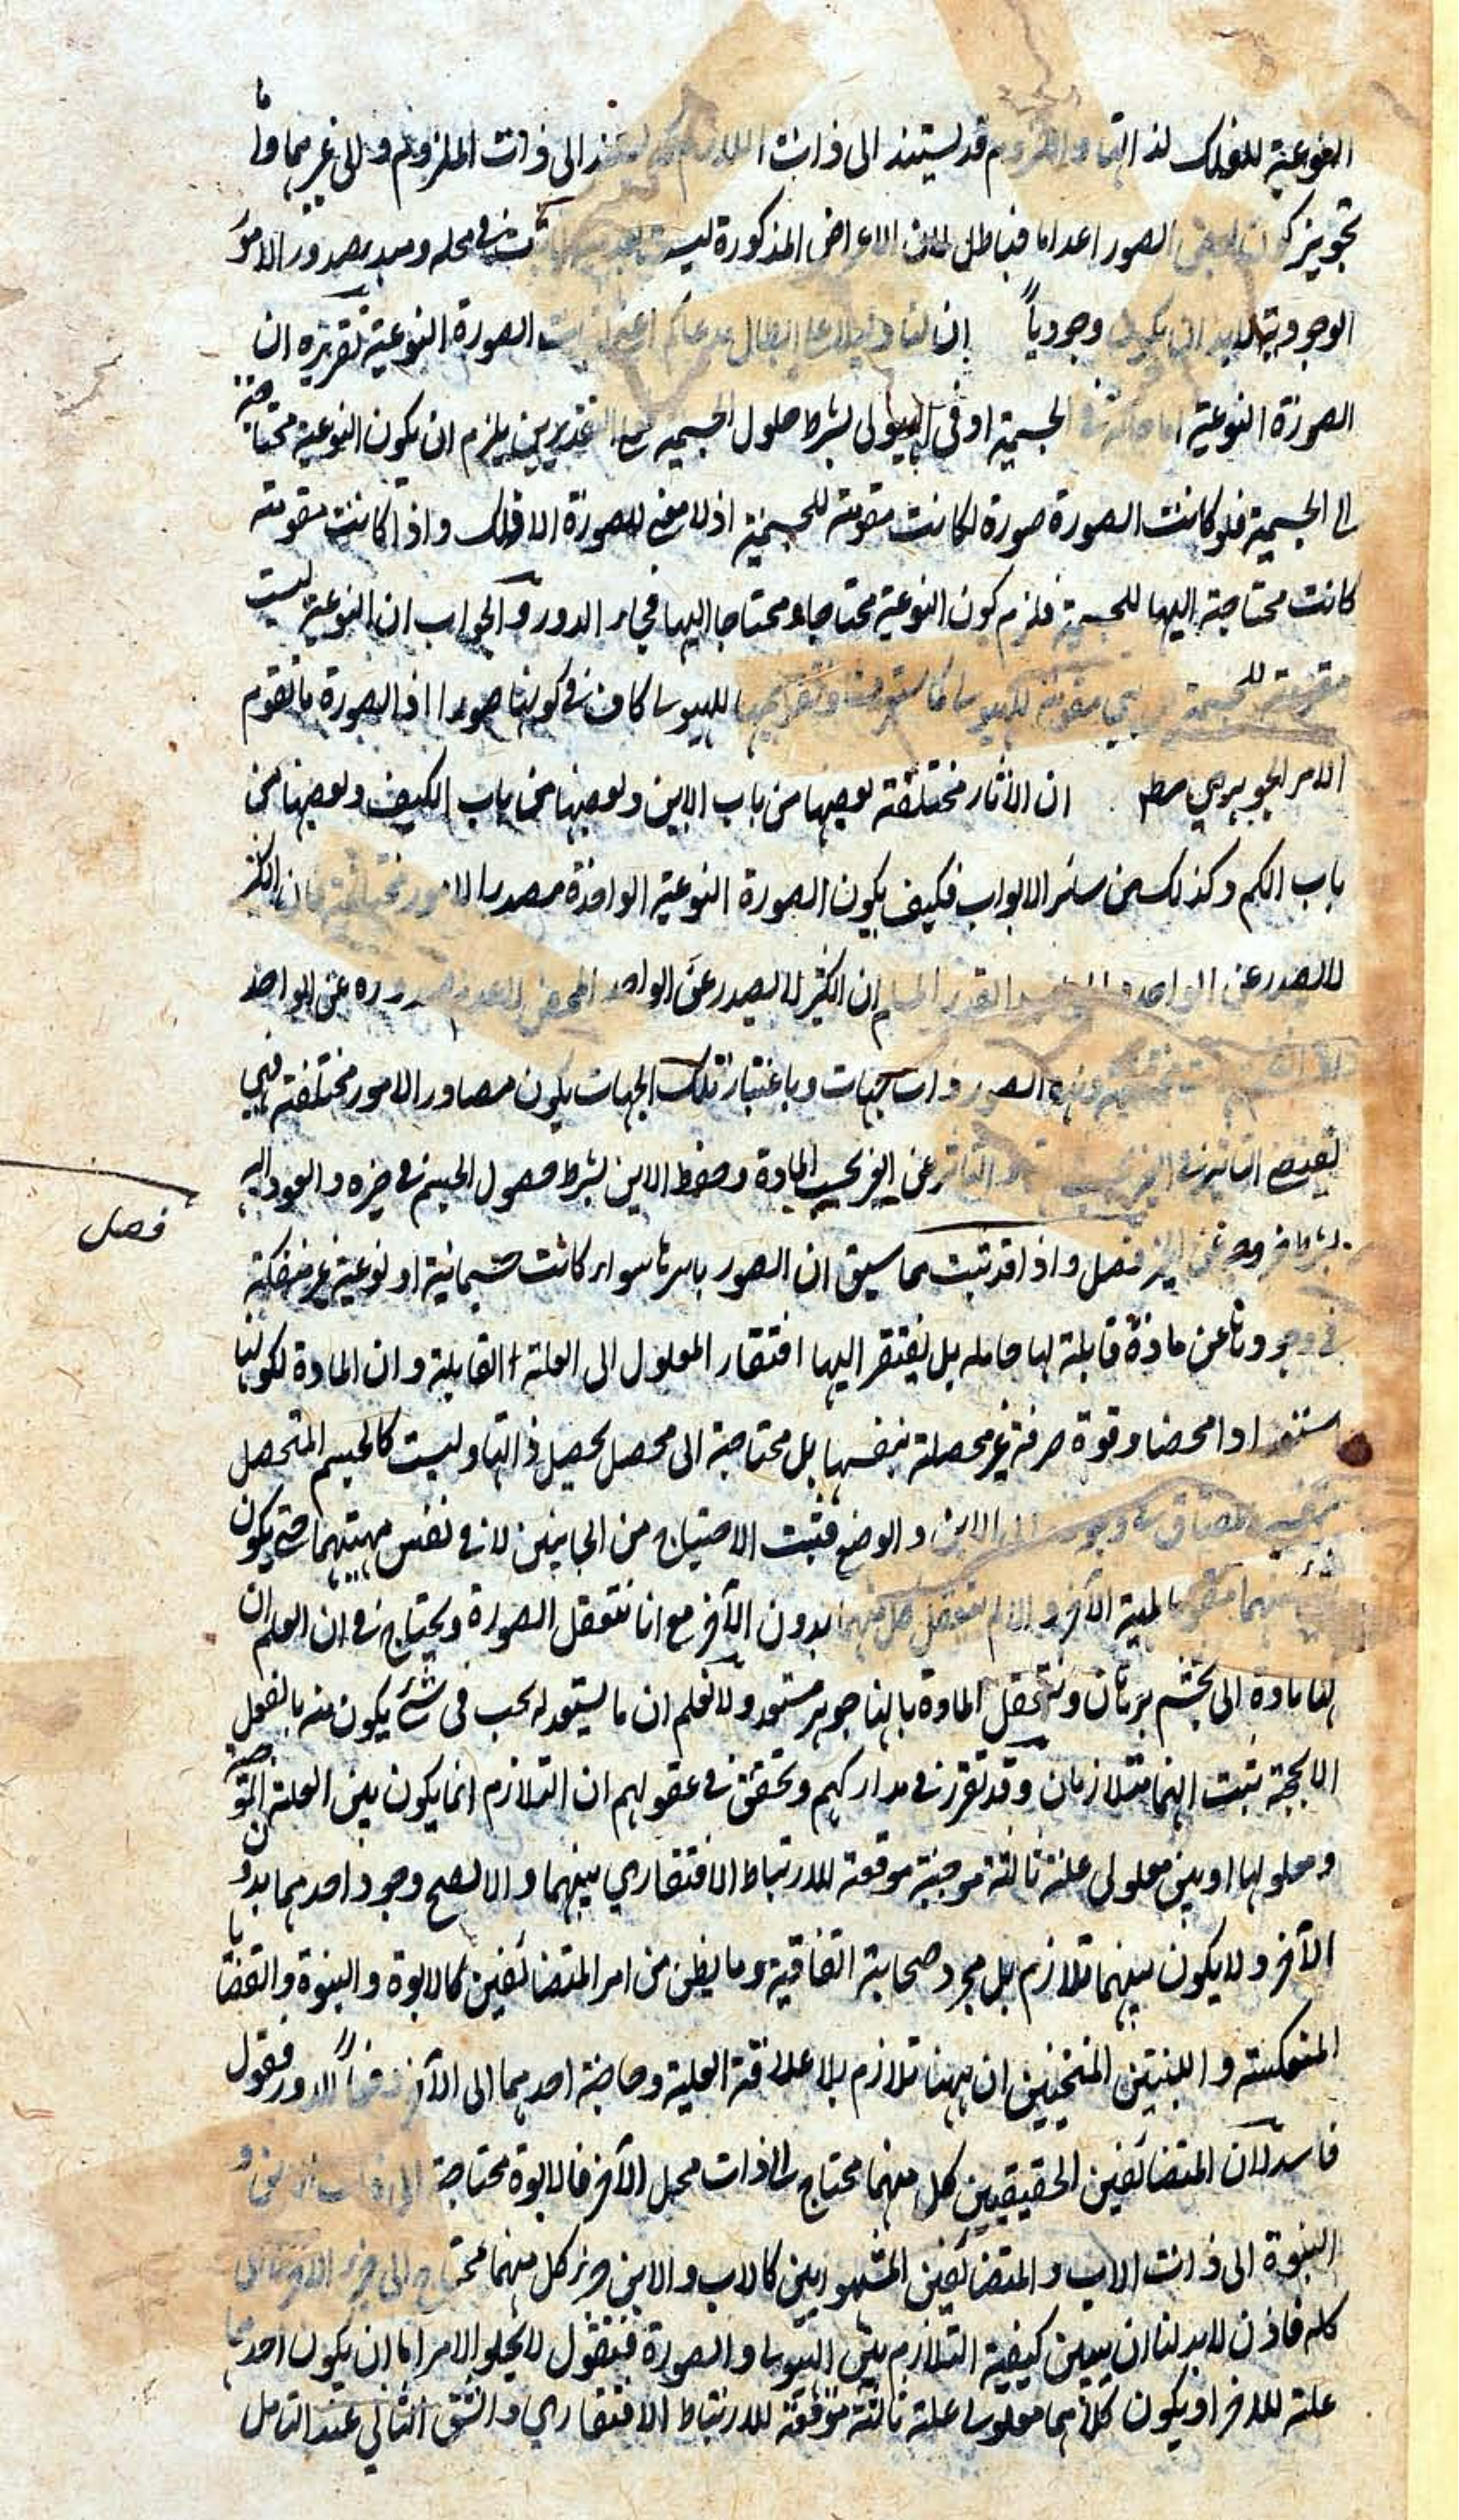 النوعية للفلك لذاتها واللزوم قد يستند الى ذات اللازم كما يستند الى ذات الملزوم والى غيرهما واما
تجويز كون بعض الصور اعداما فباطل لان الاعراض المذكورة ليست في محله ومبدء صدور الامور
الوجودية لابد ان يكون وجودياً ان لنا دليلا على ابطال مدعاكم اعني اثبات الصورة النوعية تقريره ان
الصورة النوعية اما حالة في الجسمية او في الهيولى بشرط حلول الجسمية وعلى التقديرين يلزم ان يكون النوعية محتاجة
الى الجسمية فلو كانت الصورة صورة لكانت مقومة للجسمية اذ لا معنى للصورة الا ذلك واذا كانت مقومة
كانت محتاجة اليها للجسمية فلزم كون النوعية محتاجا ومحتاجا اليها فجاء الدور والجواب ان النوعية ليست
مقومة للجسمية بل هي مقومة للهيولى كما ستعرف وتقويمها للهيولى كاف في كونها صورا اذ الصورة ما تقوم
الامر الجوهري مطلقا ان الآثار مختلفة بعضها من باب الاين وبعضها من باب الكيف وبعضها من
باب الكم وكذلك من سائر الابواب فكيف يكون الصورة النوعية الواحدة مصدرا لامور مختلفة فان الكثير
لا يصدر عن الواحد ان الكثير لا يصدر عن الواحد المحض لا عدم صدوره عن الواحد
وهذه الصور ذوات جهات وباعتبار تلك الجهات يكون مصادر الامور مختلفة فهي
تقتضي التاثير في الغير والتاثر عن الغير بحسب المادة وحفظ الاين بشرط حصول الجسم في حيزه والعود اليه
بشرط خروجه عن الحيز فصل واذا قد ثبت مما سبق ان الصور باسرها سواء كانت جسمانية او نوعية غير منفكة
في وجودها عن مادة قابلة لها حاملة بل يفتقر اليها افتقار المعلول الى العلة القابلية وان المادة لكونها
استعدادا محضا وقوة صرفة غير محصلة بنفسها بل محتاجة الى محصل يحصل ذاتها وليست كالجسم المتحصل
بنفسه المضاف في وجوده الى الاين والوضع فثبت الاحتياج من الجانبين لا في نفس مهيتهما حتى يكون
شئ منهما مقوما لمهية الآخر والا لم نتعقل كل منهما بدون الآخر مع انا نتعقل الصورة ونحتاج في ان العلم ان
لها مادة الى تجشم برهان ونتعقل المادة بانها جوهر مستعد ولا نعلم ان ما يستعد له يجب في شئ يكون منه بالفعل
الا بحجة ثبت انهما متلازمان وقد تقرر في مداركهم وتحقق في عقولهم ان التلازم انما يكون بين العلة الموجبة
ومعلولها او بين معلولي علة ثالثة موجبة موقعة للارتباط الافتقاري بينهما والا لصح وجود احدهما بدون
الآخر ولا يكون بينهما تلازم بل مجرد صحابة اتفاقية وما يظن من امر المتضائفين كالابوة والبنوة والقضايا
المنعكسة واللبنتين المنحنيتين ان بينهما تلازم بلا علاقة العلية وحاجة احدهما الى الآخر دفعاً للدور فقول
فاسد لان المتضائفين الحقيقيين كل منهما محتاج الى ذات محل الآخر فالابوة محتاجة الى ذات الابن و
البنوة الى ذات الاب والمتضائفين المشهورين كالاب والابن جزء كل منهما محتاج الى جزء الآخر لا
كله فاذن لابد لنا ان يبين كيفية التلازم بين الهيولى والصورة فنقول لا يخلو الامر اما ان يكون احدهما
علة للاخر او يكون كلاهما معلولي علة ثالثة موقعة للارتباط الافتقاري والشق الثاني عند التامل
فصل